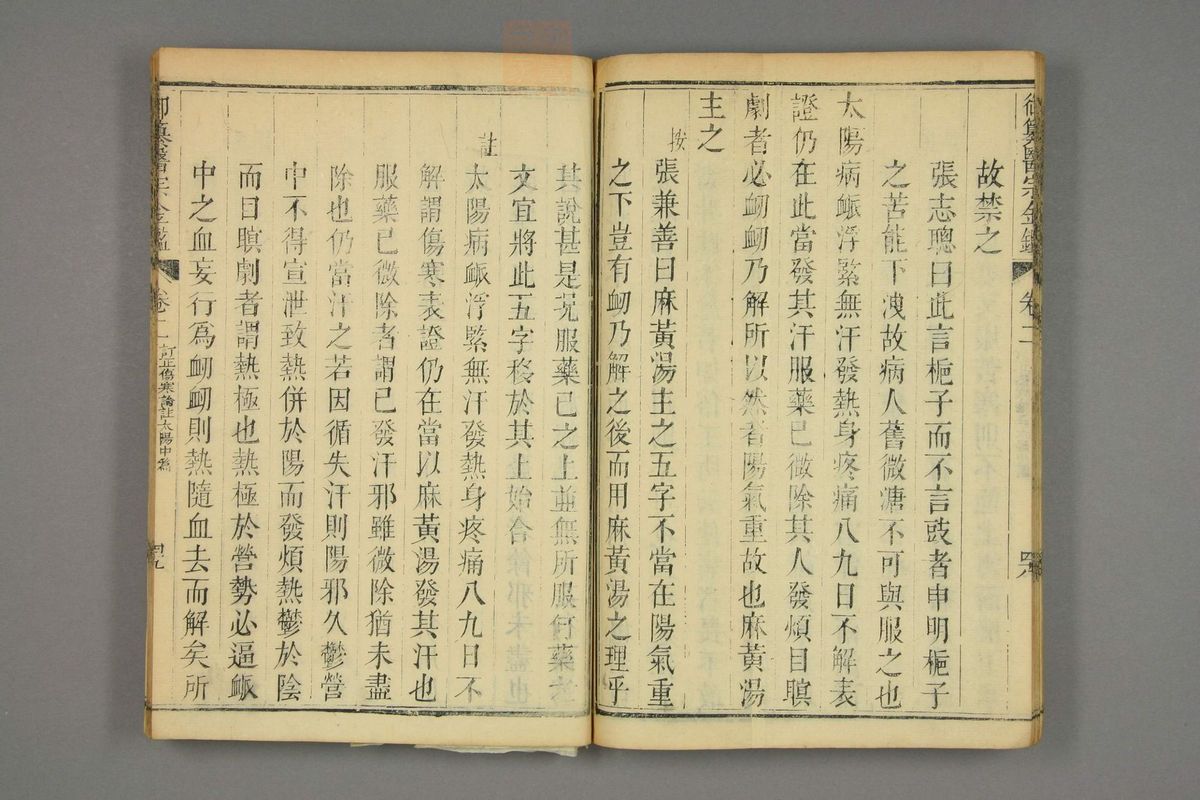 御纂醫宗金鑑 卷二 四八
故禁之
張志聰曰此言梔子而不言豉者申明梔子
之苦能下洩故病人舊微溏不可與服之也
太陽病脈浮緊無汗發熱身疼痛八九日不解表
證仍在此當發其汗服藥已微除其人發煩目瞑
劇者必衂衂乃解所以然者陽氣重故也麻黃湯
主之
按張兼善曰麻黃湯主之五字不當在陽氣重
之下豈有衂乃解之後而用麻黃湯之理乎
其說甚是况服藥已之上並無所服何藥之
文宜將此五字移於其上始合
註太陽病脈浮緊無汗發熱身疼痛八九日不
解謂傷寒表證仍在當以麻黃湯發其汗也
服藥已微除者謂已發汗邪雖微除猶未盡
除也仍當汗之若因循失汗則陽邪久鬱營
中不得宣泄致熱併於陽而發煩熱鬱於陰
而目瞑劇者謂熱極也熱極於營勢必逼衇
中之血妄行為衂衂則熱隨血去而解矣所
御纂醫宗金鑑 卷二 訂正傷寒論註太陽中篇 四九